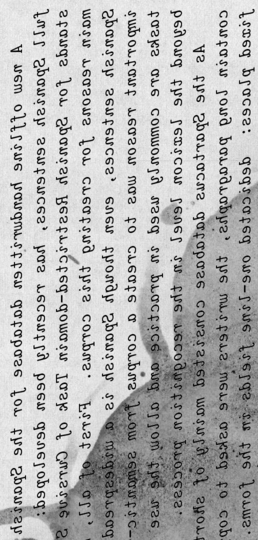 A new offline handwritten database for the Spanish
full Spanish sentences, has recently been developed:
stands for Spanish Restricted-domain Task of Cursive S
main reasons for creating this corpus. First of all,
Spanish sentences, even though Spanish is a widespread
important reason was to create a corpus from semantic-
tasks are commonly used in practice and allow the use
beyond the lexicon level in the recognition process.
As the Spartacus database consisted mainly of short
contain long paragraphs, the writers were asked to cop
fixed places: dedicated one-line fields in the forms.